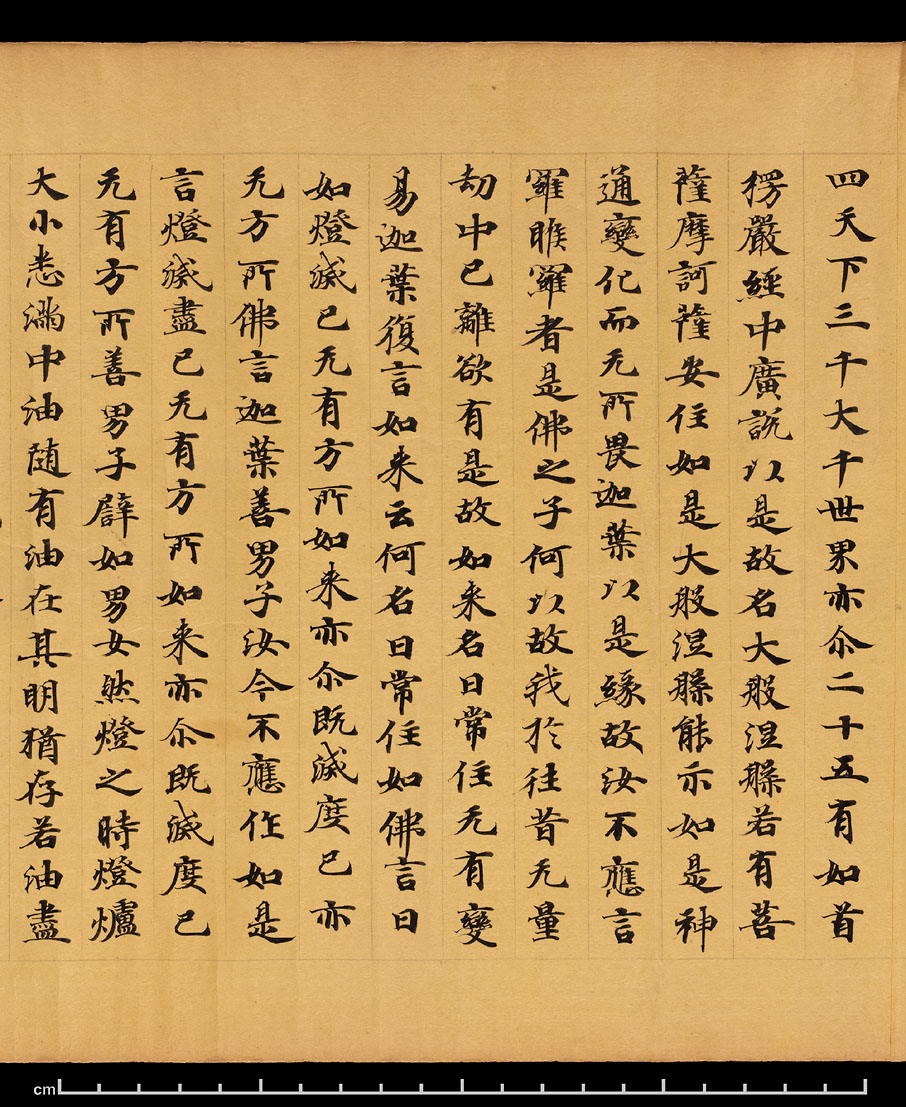 四天下三千大千世界亦尒二十五有如首
楞嚴經中廣說以是故名大般涅槃若有菩
薩摩訶薩安住如是大般涅槃能示如是神
通變化而无所畏迦葉以是緣故汝不應言
羅睺羅者是佛之子何以故我於往昔无量
劫中已離欲有是故如来名曰常住无有變
易迦葉復言如来云何名曰常住如佛言曰
如燈滅已无有方所如来亦尒既滅度已亦
无方所佛言迦葉善男子汝今不應作如是
言燈滅盡已无有方所如来亦尒既滅度已
无有方所善男子譬如男女然燈之時燈爐
大小悉滿中油随有油在其明猶存若油盡